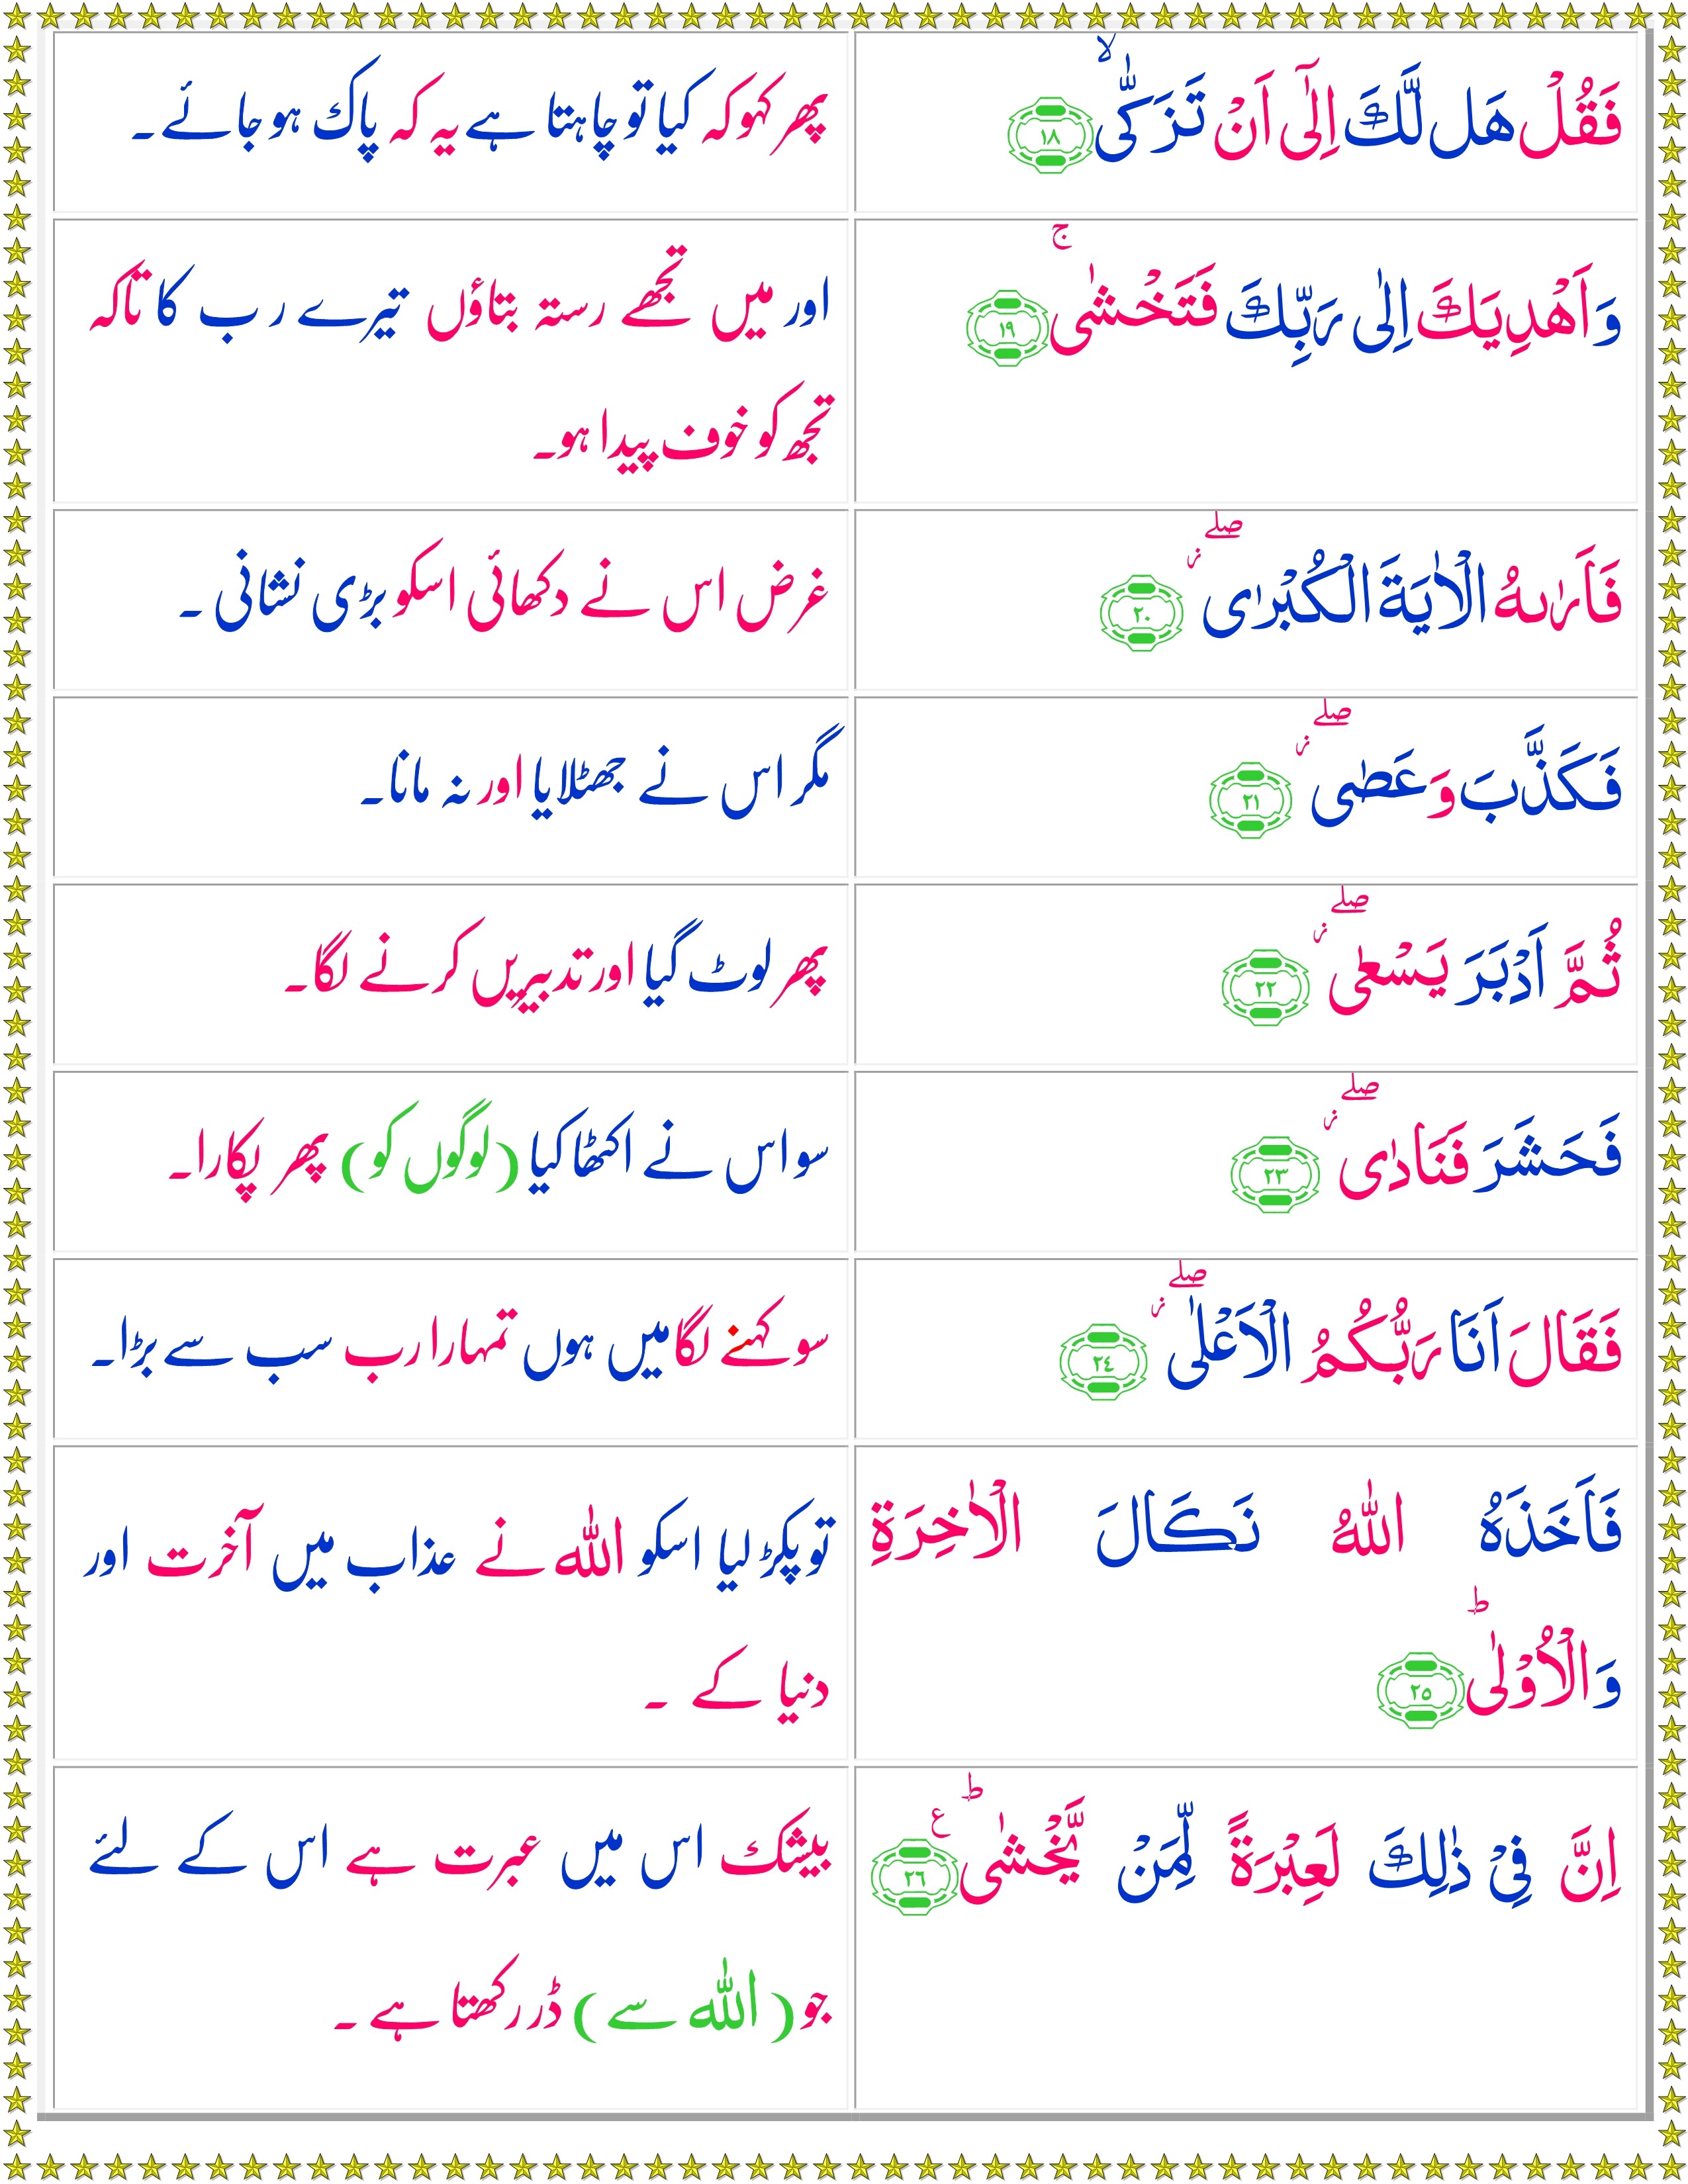 فَقُلۡ هَل لَّكَ اِلٰٓى اَنۡ تَزَكّٰىۙ‏ ﴿۱۸﴾
پھر کہو کہ کیا تو چاہتا ہے یہ کہ پاک ہو جائے۔
وَاَهۡدِيَكَ اِلٰى رَبِّكَ فَتَخۡشٰى​ۚ‏ ﴿۱۹﴾
اور میں تجھے رستہ بتاؤں تیرے رب کا تاکہ
تجھ کو خوف پیدا ہو۔
فَاَرٰٮهُ الۡاٰيَةَ الۡكُبۡرٰى ۖ ‏ ﴿۲۰﴾
غرض اس نے دکھائی اسکو بڑی نشانی ۔
فَكَذَّبَ وَعَصٰى ۖ‏ ﴿۲۱﴾
مگر اس نے جھٹلایا اور نہ مانا۔
ثُمَّ اَدۡبَرَ يَسۡعٰى ۖ‏ ﴿۲۲﴾
پھر لوٹ گیا اور تدبیریں کرنے لگا۔
فَحَشَرَ فَنَادٰى ۖ‏ ﴿۲۳﴾
سو اس نے اکٹھا کیا (لوگوں کو) پھر پکارا۔
فَقَالَ اَنَا رَبُّكُمُ الۡاَعۡلٰى ۖ‏ ﴿۲٤﴾
سو کہنے لگا میں ہوں تمہارا رب سب سے بڑا۔
فَاَخَذَهُ اللّٰهُ نَڪَالَ الۡاٰخِرَةِ
وَالۡاُوۡلٰى ؕ‏ ﴿۲۵﴾
تو پکڑ لیا اسکو اللہ نے عذاب میں آخرت اور
دنیا کے ۔
اِنَّ فِىۡ ذٰلِكَ لَعِبۡرَةً لِّمَنۡ يَّخۡشٰىؕ ع ﴿۲٦﴾
بیشک اس میں عبرت ہے اس کے لئے
جو (اللہ سے) ڈر رکھتا ہے ۔